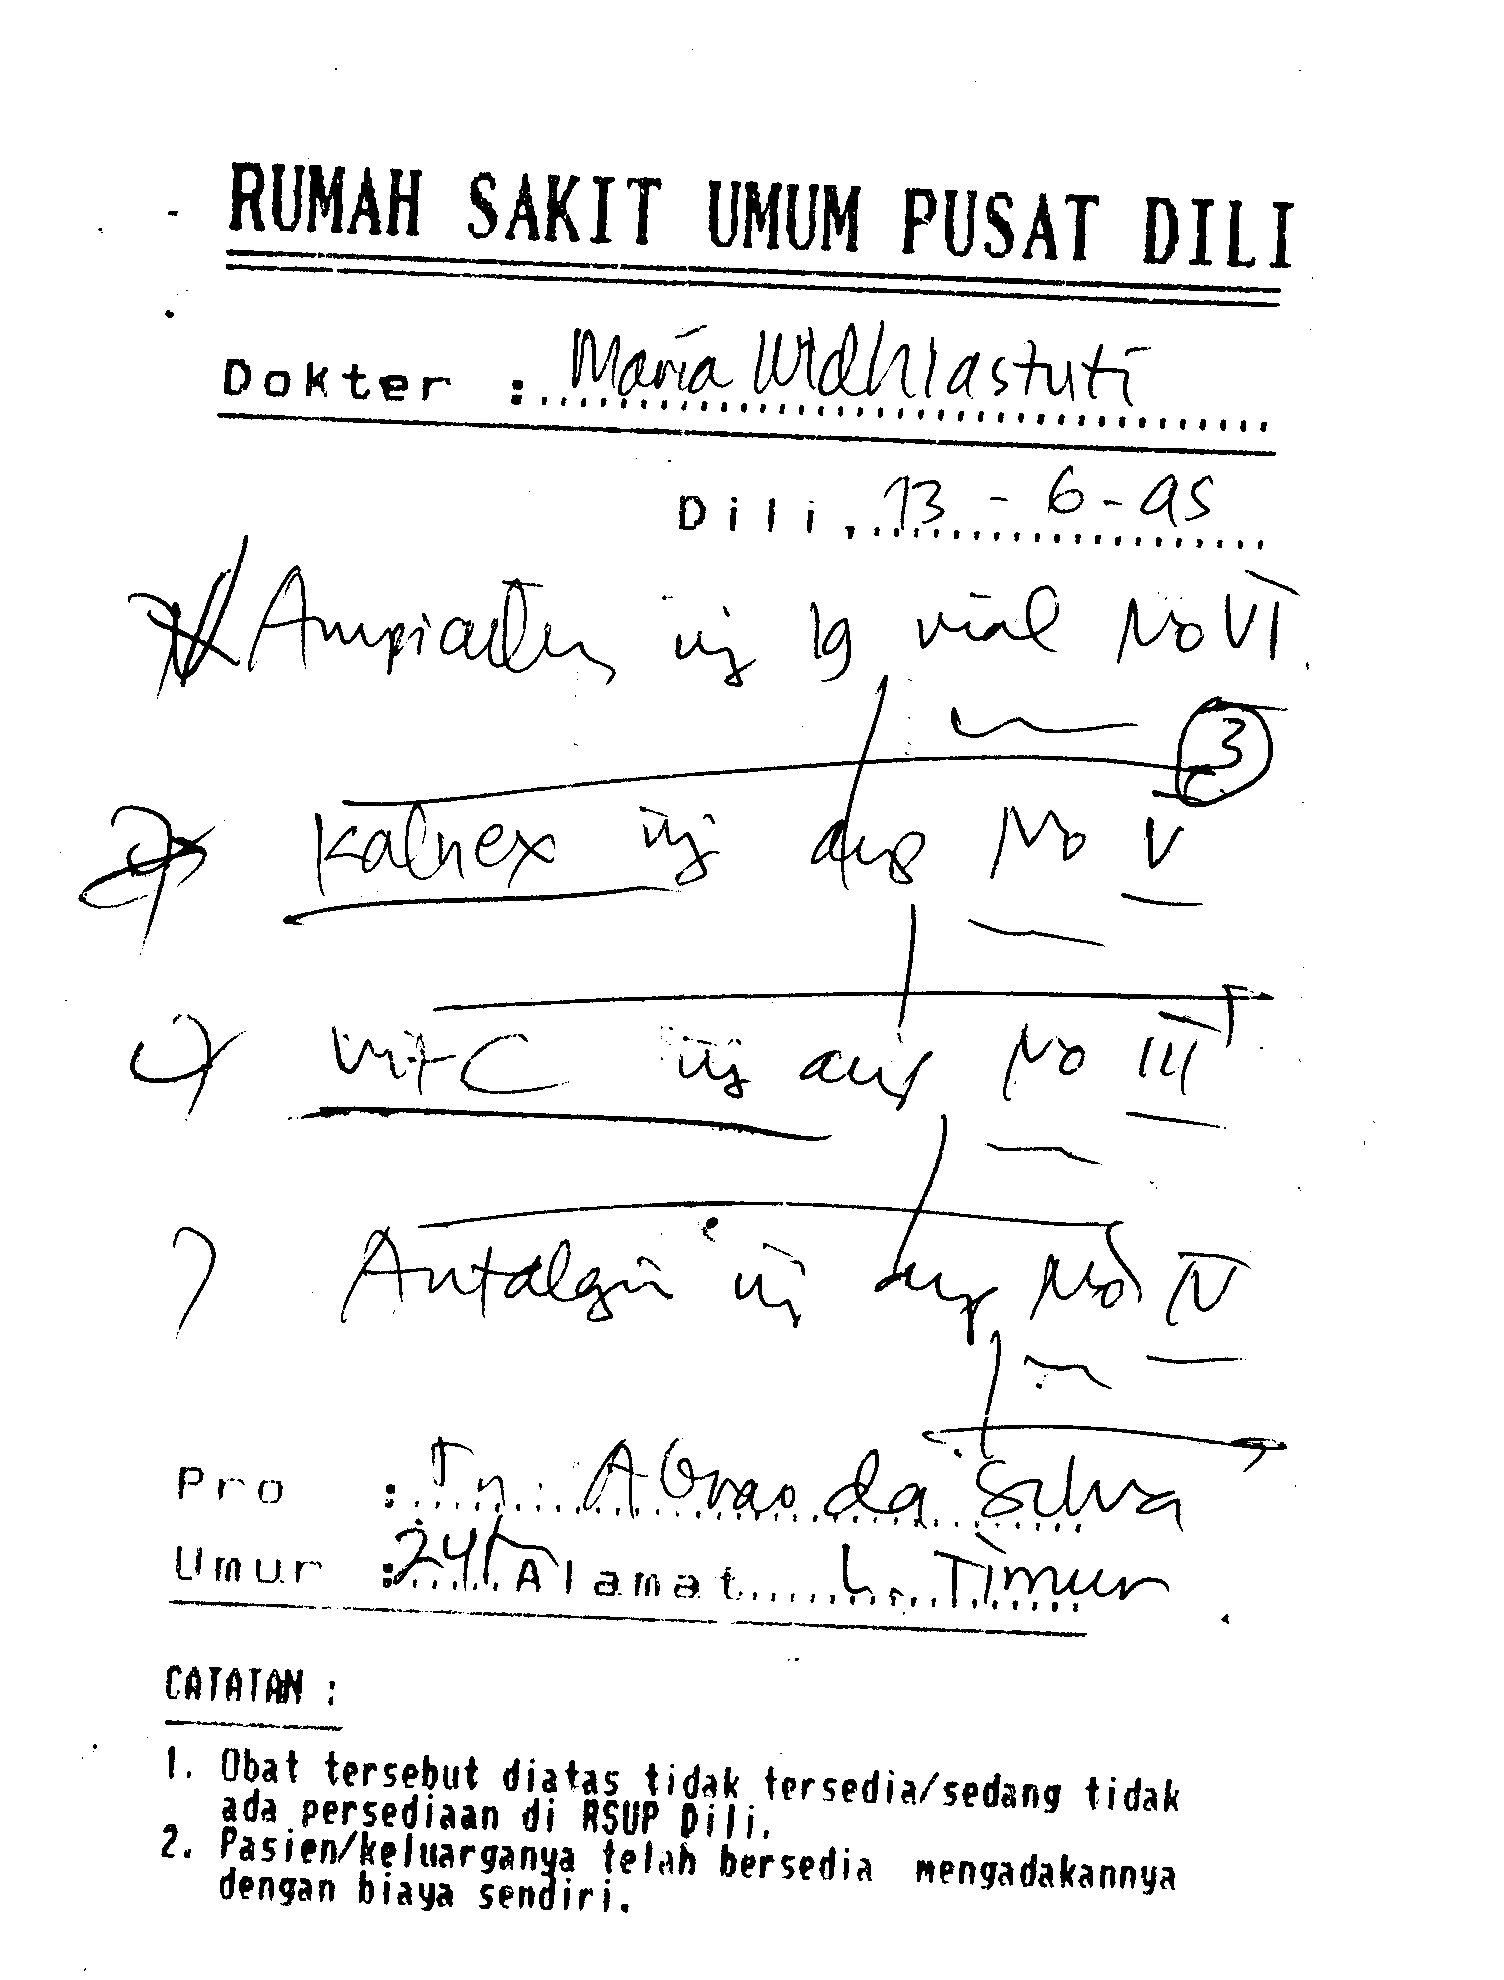 RUMAH SAKIT UMUM PUSAT DILI
Dokter : Maria Widhiastuti
Dili, 13 - 6 - 95
Ampicillin inj 1g vial No VI
3
Kalnex inj amp No V
Vit C inj amp No III
Antalgin inj amp No IV
Pro : Tn. Abrao da Silva
Umur : 24 t Alamat L. Timur
CATATAN :
1. Obat tersebut diatas tidak tersedia/sedang tidak
ada persediaan di RSUP Dili.
2. Pasien/keluarganya telah bersedia mengadakannya
dengan biaya sendiri.